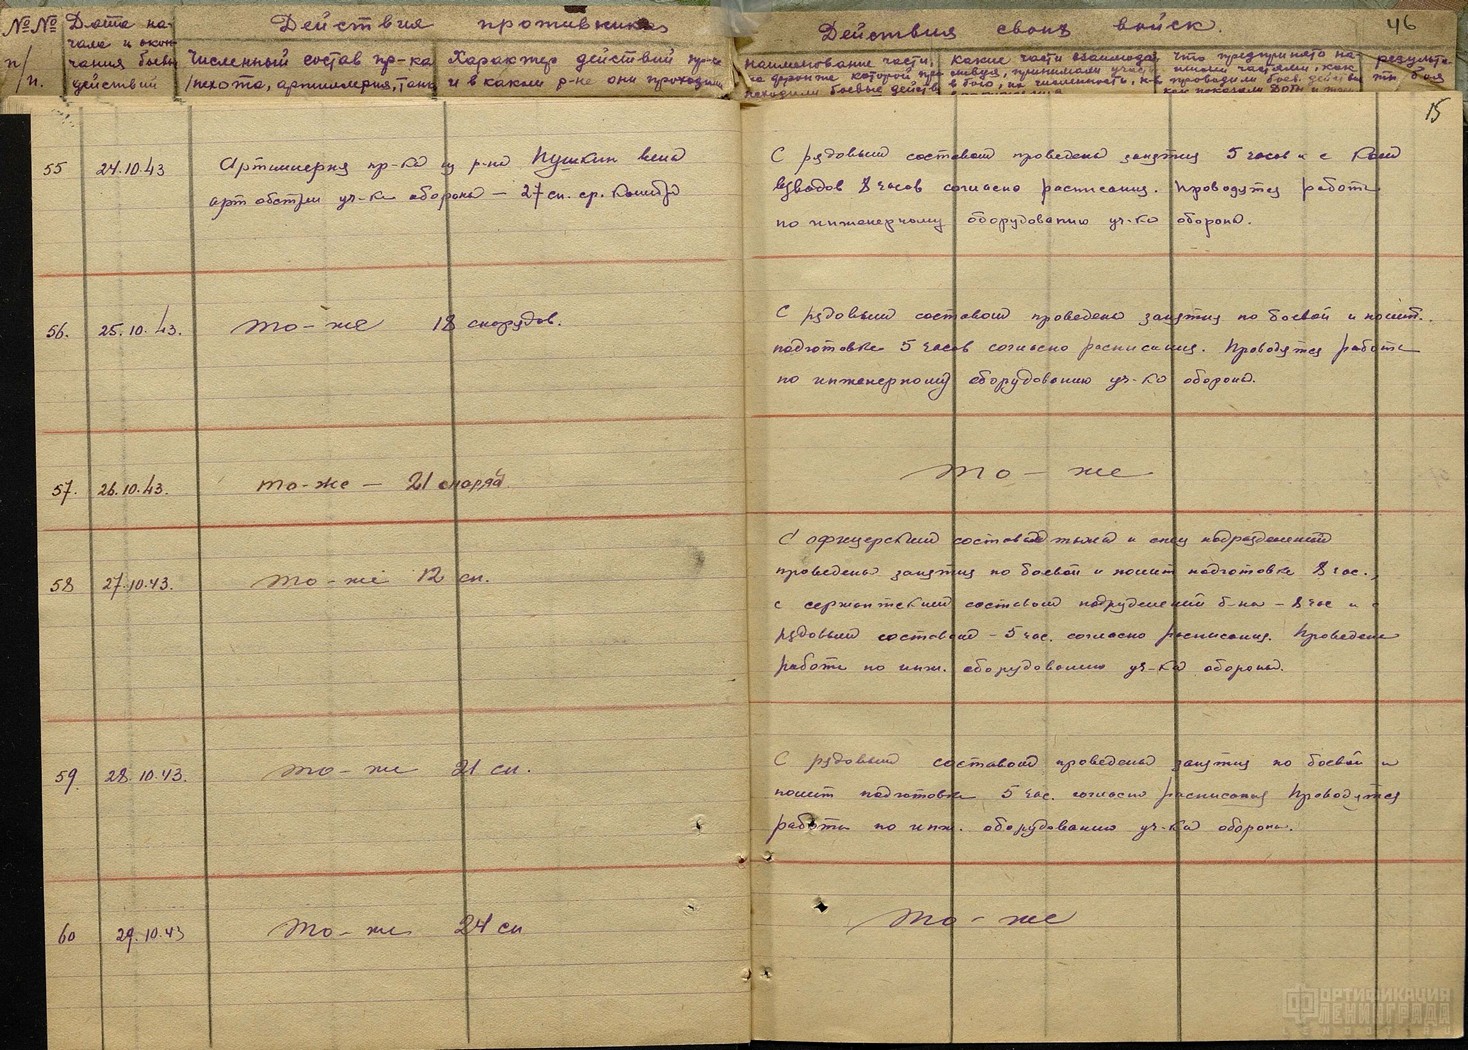 №№ п/п.
Дата начала и окончания боевых действий
Действия противника
Численный состав пр-ка /пехота, артиллерия, танк
Характер действий пр-ка и в каком р-не они проходили
Действия своих войск.
46
наименование части, на фронте которой про
исходили боевые действ
какие части взаимодей
ствуя, принимали участ
в бою, их численность,
что предпринято на
шими частями, как
проводили боев. действия
как показали ДОТы и
результа
ты боя
15
55 24.10.43 Артиллерия пр-ка из р-на Пушкин вела
арт обстрел уч-ка обороны – 27 сн. ср. калибра
С рядовым составом проведены занятия 5 часов и с ком
взводов 8 часов согласно расписания. Проводятся работы
по инженерному оборудованию уч-ка обороны.
56. 25.10.43. то-же 18 снарядов.
С рядовым составом проведены занятия по боевой и полит.
подготовке 5 часов согласно расписания. Проводятся работы
по инженерному оборудованию уч-ка обороны.
57. 26.10.43. то-же – 21 снаряд
то-же
58 27.10.43. то-же 12 сн.
С офицерским составом тыла и спец подразделений
проведены занятия по боевой и полит подготовке 8 час.,
с сержантским составом подразделений б-на – 8 час и с
рядовым составом – 5 час. согласно расписания. Проведены
работы по инж. оборудованию уч-ка обороны.
59. 28.10.43. то-же 21 сн.
С рядовым составом проведены занятия по боевой и
полит подготовке 5 час. согласно расписания Проводятся
работы по инж. оборудованию уч-ка обороны.
60 29.10.43 то-же 24 сн
то-же
ФОРТИФИКАЦИЯ
ЛЕНИНГРАДА